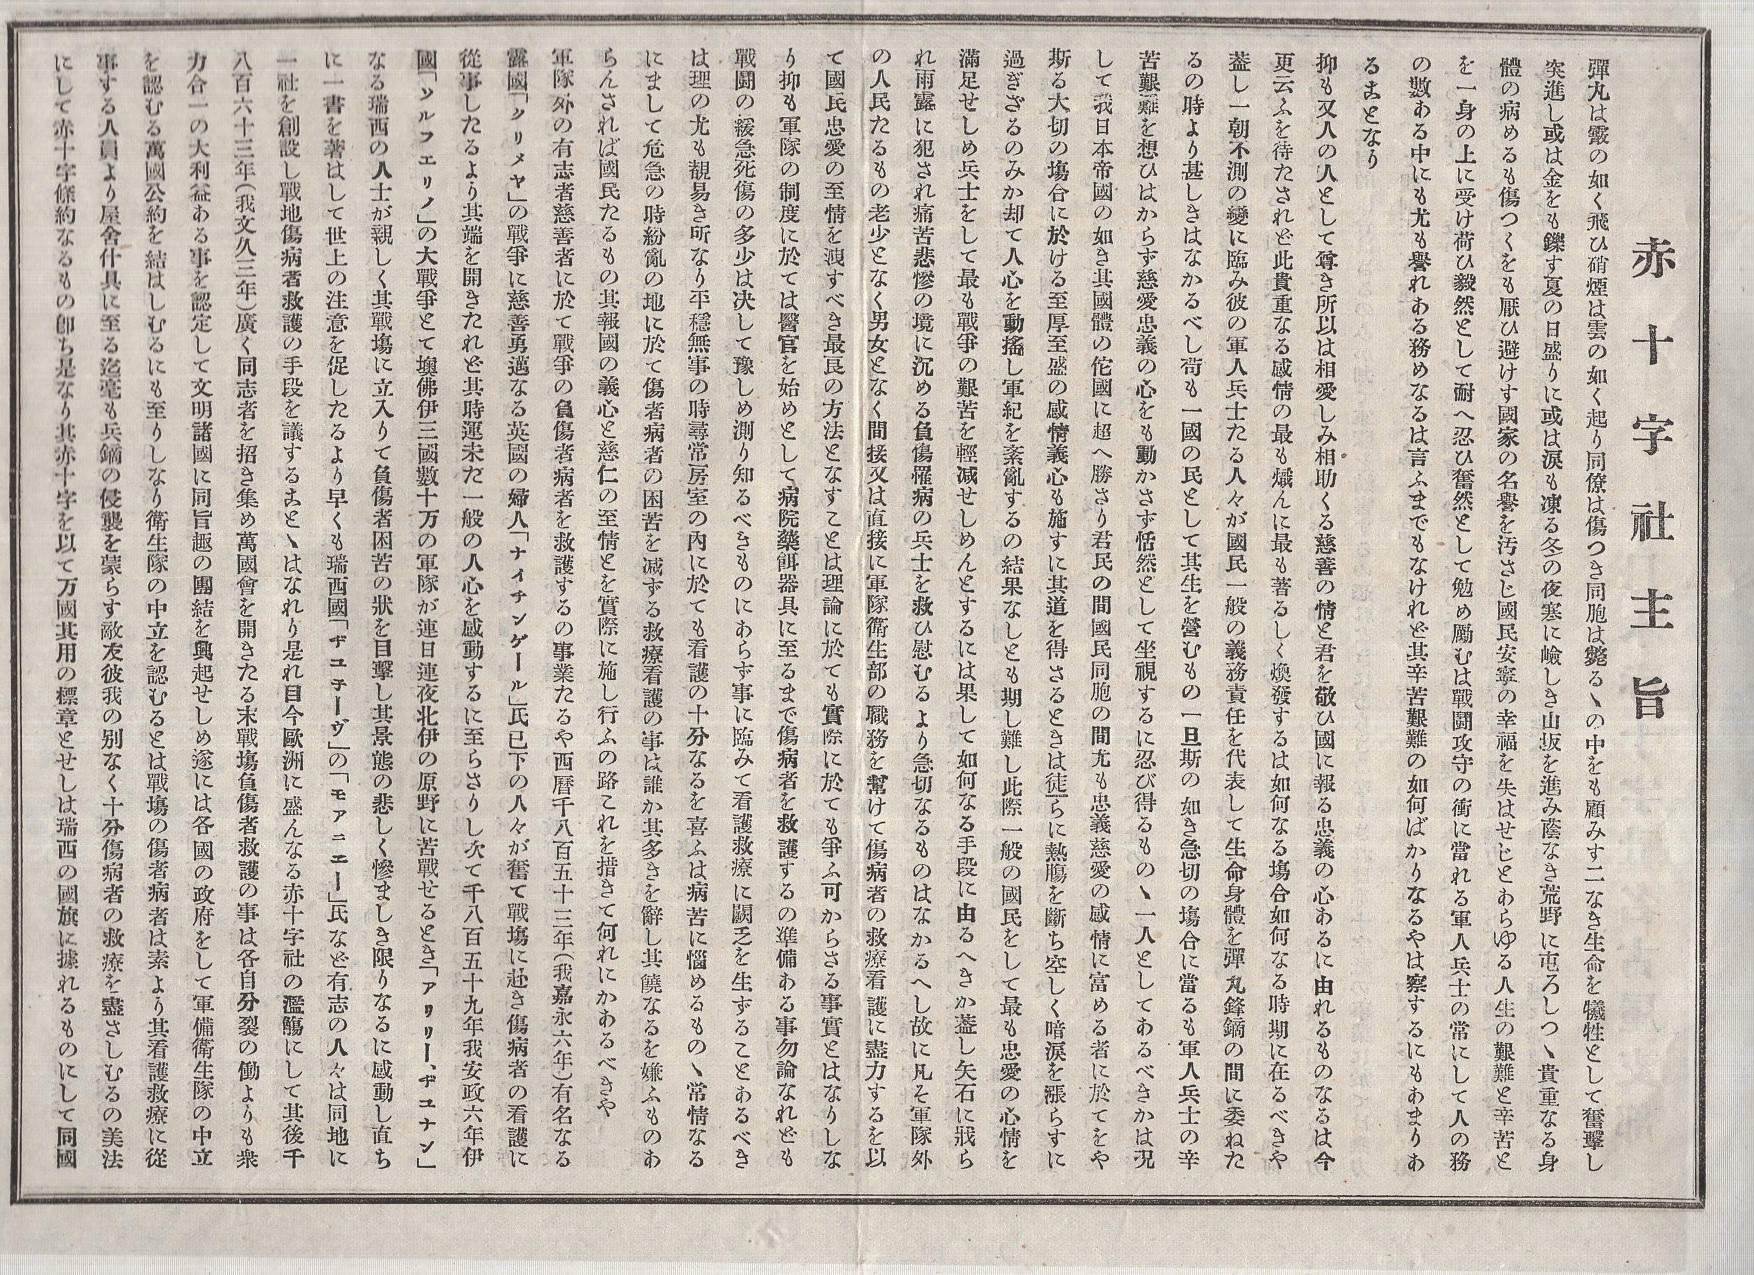 赤十字社主旨
彈丸は霰の如く飛ひ硝煙は雲の如く起り同僚は傷つき同胞は斃るゝの中をも顧みす二なき生命を犠牲として奮撃し
突進し或は金をも鑠す夏の日盛りに或は涙も凍る冬の夜寒に嶮しき山坂を進み蔭なき荒野に屯ろしつゝ貴重なる身
體の病めるも傷つくをも厭ひ避けす國家の名譽を汚さじ國民安寧の幸福を失はせじとあらゆる人生の艱難と辛苦と
を一身の上に受け荷ひ毅然として耐へ忍ひ奮然として勉め勵むは戰闘攻守の衝に當れる軍人兵士の常にして人の務
の數ある中にも尤も譽れある務めなるは言ふまでもなけれど其辛苦艱難の如何ばかりなるやは察するにもあまりあ
るヿとなり
抑も又人の人として尊き所以は相愛しみ相助くる慈善の情と君を敬ひ國に報る忠義の心あるに由れるものなるは今
更云ふを待たされど此貴重なる感情の最も熾んに最も著るしく煥發するは如何なる塲合如何なる時期に在るべきや
蓋し一朝不測の變に臨み彼の軍人兵士たる人々が國民一般の義務責任を代表して生命身體を彈丸鋒鏑の間に委ねた
るの時より甚しきはなかるべし苟も一國の民として其生を營むもの一旦斯の如き急切の塲合に當るも軍人兵士の辛
苦艱難を想ひはからず慈愛忠義の心をも動かさず恬然として坐視するに忍び得るものゝ一人としてあるべきかは况
して我日本帝國の如き其國體の佗國に超へ勝さり君民の間國民同胞の間尤も忠義慈愛の感情に富める者に於てをや
斯る大切の塲合に於ける至厚至盛の感情義心も施すに其道を得さるときは徒らに熱膓を斷ち空しく暗涙を漲らすに
過ぎざるのみか却て人心を動搖し軍紀を紊亂するの結果なしとも期し難し此際一般の國民をして最も忠愛の心情を
滿足せしめ兵士をして最も戰爭の艱苦を輕減せしめんとするには果して如何なる手段に由るへきか蓋し矢石に戕ら
れ雨露に犯され痛苦悲慘の境に沉める負傷罹病の兵士を救ひ慰むるより急切なるものはなかるへし故に凡そ軍隊外
の人民たるもの老少となく男女となく間接又は直接に軍隊衛生部の職務を幇けて傷病者の救療看護に盡力するを以
て國民忠愛の至情を洩すべき最良の方法となすことは理論に於ても實際に於ても爭ふ可からさる事實とはなりしな
り抑も軍隊の制度に於ては醫官を始めとして病院藥餌器具に至るまで傷病者を救護するの凖備ある事勿論なれども
戰闘の緩急死傷の多少は决して豫しめ測り知るべきものにあらず事に臨みて看護救療に闕乏を生ずることあるべき
は理の尤も覩易き所なり平穩無事の時尋常房室の內に於ても看護の十分なるを喜ふは病苦に惱めるものゝ常情なる
にまして危急の時紛亂の地に於て傷者病者の困苦を減ずる救療看護の事は誰か其多きを辭し其饒なるを嫌ふものあ
らんされば國民たるもの其報國の義心と慈仁の至情とを實際に施し行ふの路これを措きて何れにかあるべきや
軍隊外の有志者慈善者に於て戰爭の負傷者病者を救護するの事業たるや西曆千八百五十三年(我嘉永六年)有名なる
露國「クリメヤ」の戰爭に慈善勇邁なる英國の婦人「ナイチンゲール」氏已下の人々が奮て戰塲に赴き傷病者の看護に
從事したるより其端を開きたれど其時運未た一般の人心を感動するに至らさりし次て千八百五十九年我安政六年伊
國「ソルフエリノ」の大戰爭とて墺佛伊三國數十万の軍隊が連日連夜北伊の原野に苦戰せるとき「アリリー、ヂユナン」
なる瑞西の人士が親しく其戰塲に立入りて負傷者困苦の狀を目擊し其景態の悲しく慘ましき限りなるに感動し直ち
に一書を著はして世上の注意を促したるより早くも瑞西國「ヂユ子ーヴ」の「モアニエー」氏など有志の人々は同地に
一社を創設し戰地傷病者救護の手段を議するヿとゝはなれり是れ目今歐洲に盛んなる赤十字社の濫觴にして其後千
八百六十三年(我文久三年)廣く同志者を招き集め萬國會を開きたる末戰塲負傷者救護の事は各自分裂の働よりも衆
力合一の大利益ある事を認定して文明諸國に同旨趣の團結を興起せしめ遂には各國の政府をして軍備衛生隊の中立
を認むる萬國公約を結はしむるにも至りしなり衛生隊の中立を認むるとは戰塲の傷者病者は素より其看護救療に從
事する人員より屋舍什具に至る迄毫も兵鏑の侵襲を蒙らす敵友彼我の別なく十分傷病者の救療を盡さしむるの美法
にして赤十字條約なるもの卽ち是なり其赤十字を以て万國其用の標章とせしは瑞西の國旗に據れるものにして同國